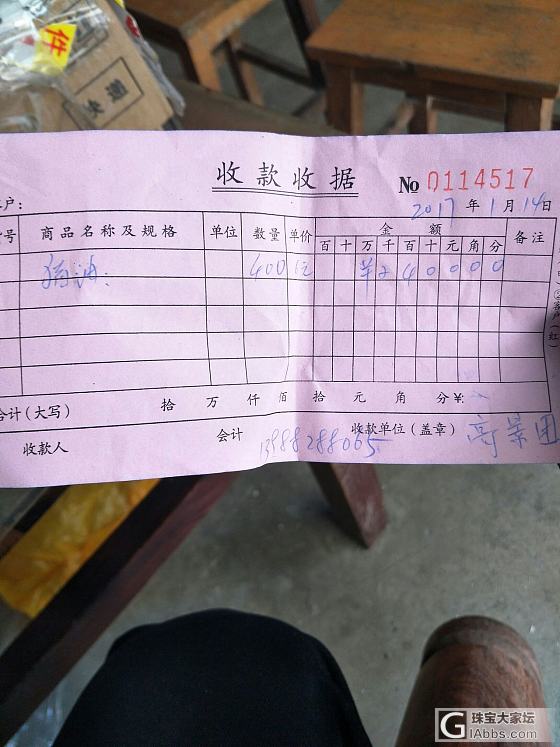 件
收款收据 No 0114517
2017 年 1 月 14 日
户:
号 商品名称及规格 单位 数量 单价 金额 备注
百 十 万 千 百 十 元 角 分
400 4 0 0 0 0
合计(大写) 拾 万 仟 佰 拾 元 角 分 ¥:
收款人 会计 13988288065 收款单位(盖章) 高景团
珠宝大家坛
GIAbbs.com